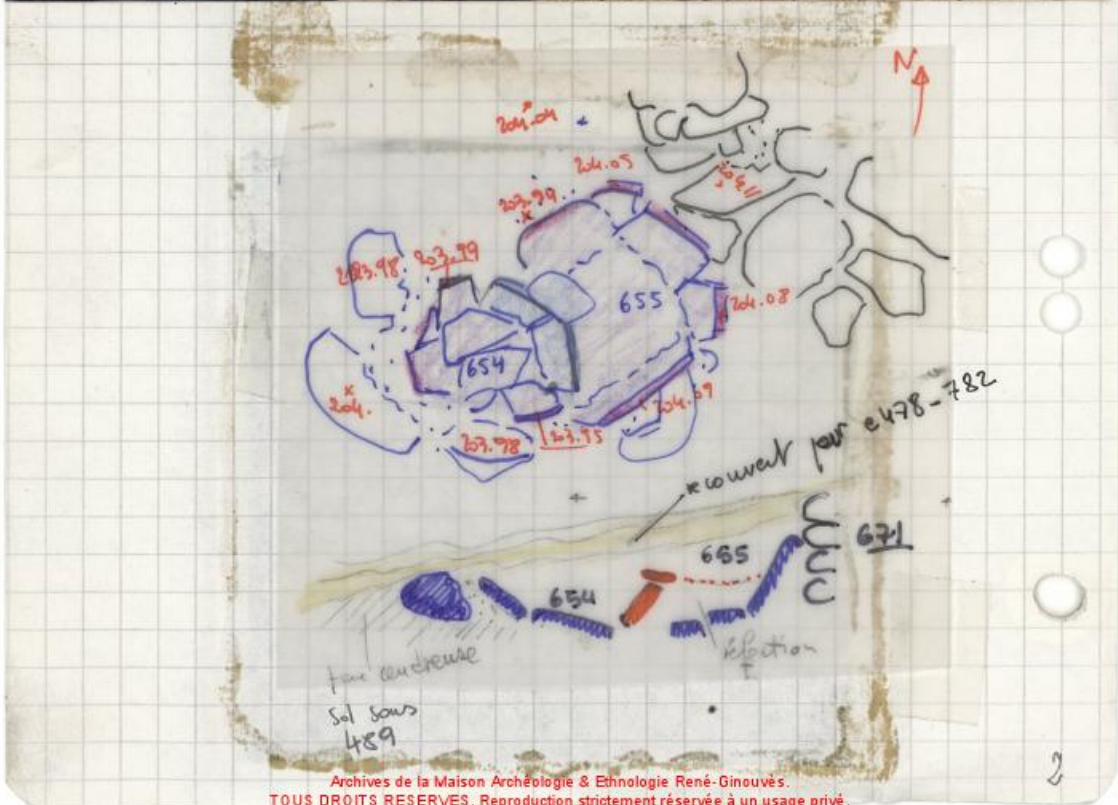 N
204.04
204.05
203.99
204.11
203.98
203.99
655
204.08
654
204.
204.09
203.98
203.95
recouvert par e 478-782
655
671
654
réfection
terre cendreuse
Sol sous
489
2
Archives de la Maison Archéologie & Ethnologie René-Ginouvès.
TOUS DROITS RESERVES. Reproduction strictement réservée à un usage privé.